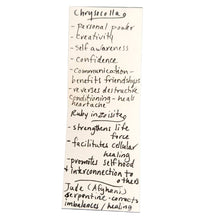 Chrysocolla
- personal power
- creativity
- self awareness
- confidence
- communication -
benefits friendships
- reverses destructive
conditioning - heals
heartache
Ruby in zoisite
- strengthens life
force
- facilitates cellular
healing
- promotes selfhood
& interconnection to
others
Jade (Afghani)
serpentine - corrects
imbalances / healing